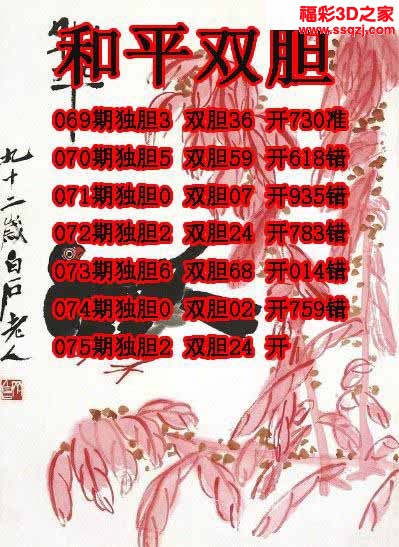 福彩3D之家
www.ssqzj.com
和平双胆
069期独胆3 双胆36 开730准
070期独胆5 双胆59 开618错
071期独胆0 双胆07 开935错
072期独胆2 双胆24 开783错
073期独胆6 双胆68 开014错
074期独胆0 双胆02 开759错
075期独胆2 双胆24 开
九十二歲白石老人